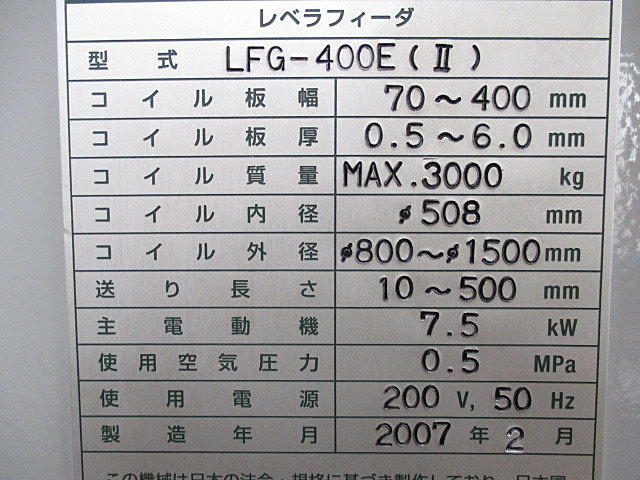 レベラフィーダ
型式 LFG-400E(Ⅱ)
コイル板幅 70～400 mm
コイル板厚 0.5～6.0 mm
コイル質量 MAX.3000 kg
コイル内径 φ508 mm
コイル外径 φ800～φ1500 mm
送り長さ 10～500 mm
主電動機 7.5 kW
使用空気圧力 0.5 MPa
使用電源 200 V, 50 Hz
製造年月 2007 年 2 月
この機械は日本の法令・規格に基づき製作しており、日本国